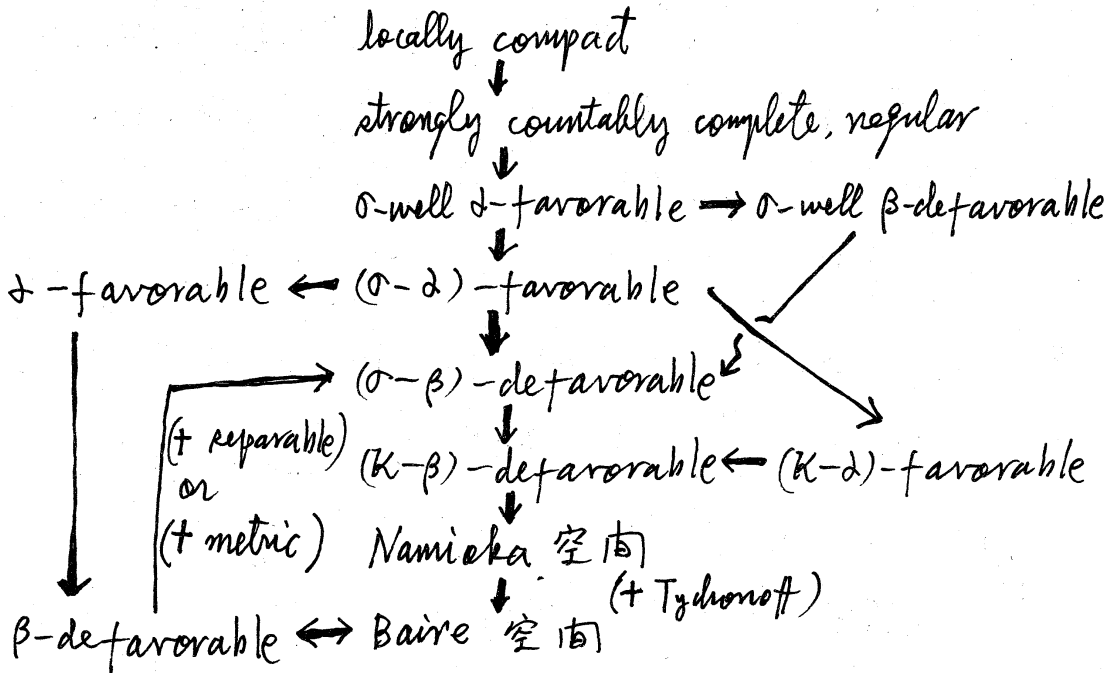 locally compact
↓
strongly countably complete, regular
↓
σ-well α-favorable → σ-well β-defavorable
↓
α-favorable ← (σ-α)-favorable
↓
(σ-β)-defavorable
(+ separable)
↓
(K-β)-defavorable ← (K-α)-favorable
or
↓
(+ metric) Namioka 空间
↓ (+ Tychonoff)
β-defavorable ↔ Baire 空间